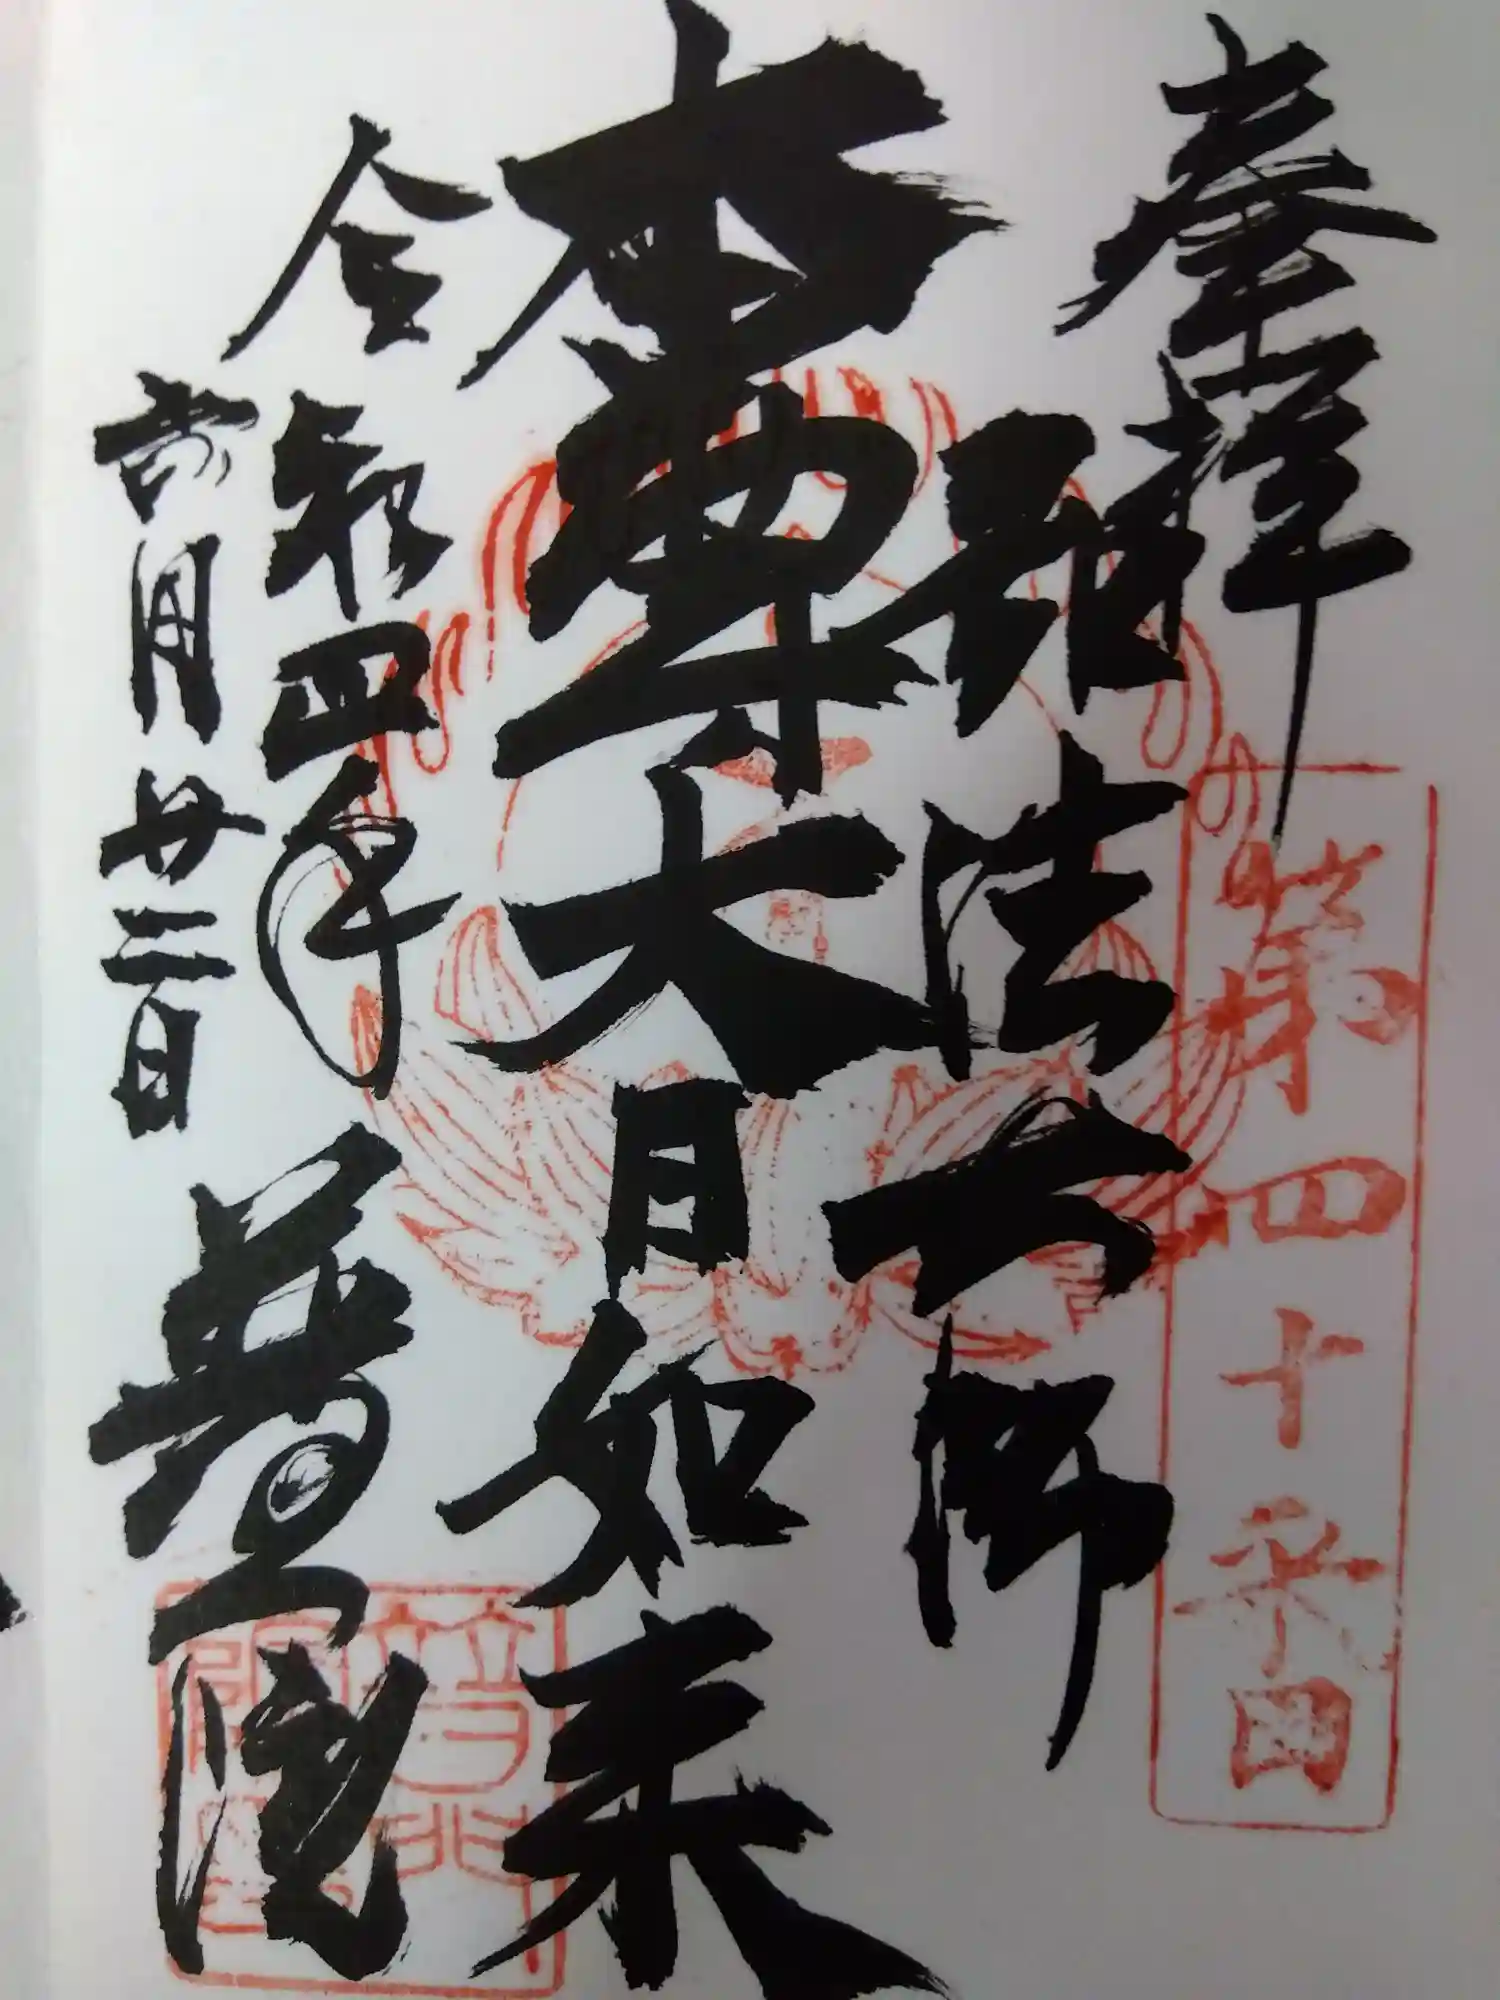 奉拝
第四十番
弘法大師
本尊大日如来
令和四年
六月廿二日
普門閣